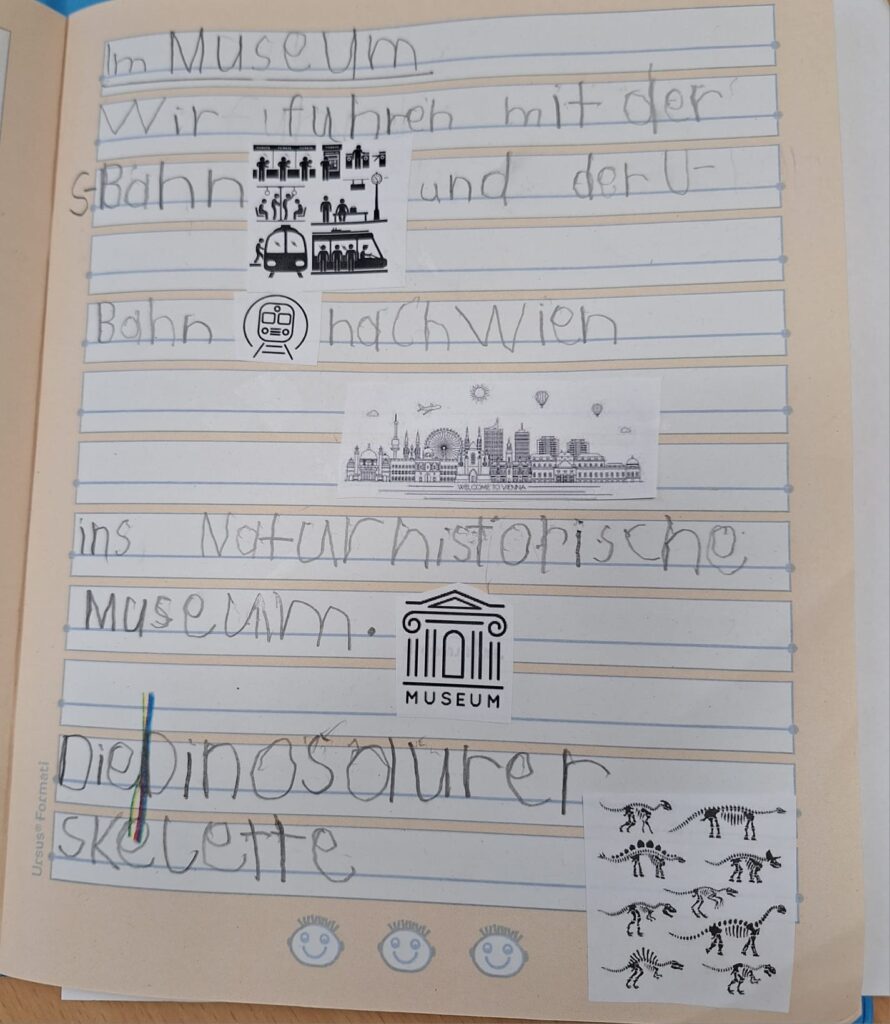 Im Museum
Wir fuhren mit der
S-Bahn und der U-
Bahn nach Wien
WELCOME TO VIENNA
ins Naturhistorische
Museum.
MUSEUM
Die Dinosaurer
Skelette
Ursus® Formati